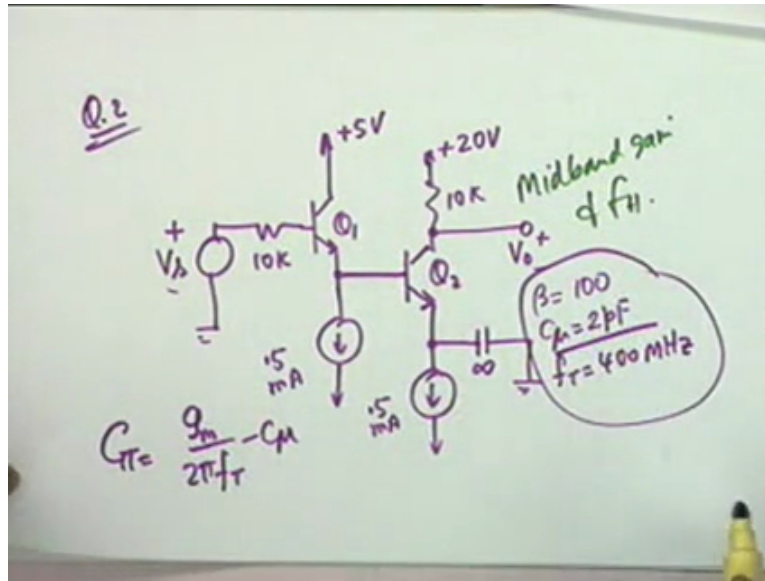 Q.2
+5V
+20V
Midband gain
& fH.
10K
Q1
+
Vs
-
10K
Q2
Vo
+
-
β = 100
Cμ = 2pF
fT = 400 MHz
∞
.5
mA
.5
mA
Cπ = gm/2πfT - Cμ